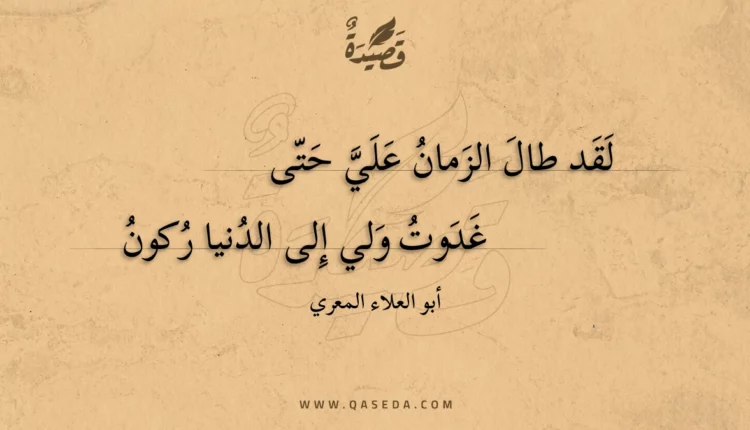 قَصِيدَةٌ
لَقَد طالَ الزَمانُ عَلَيَّ حَتّى
غَدَوتُ وَلي إِلى الدُنيا رُكونُ
أبو العلاء المعري
WWW.QASEDA.COM